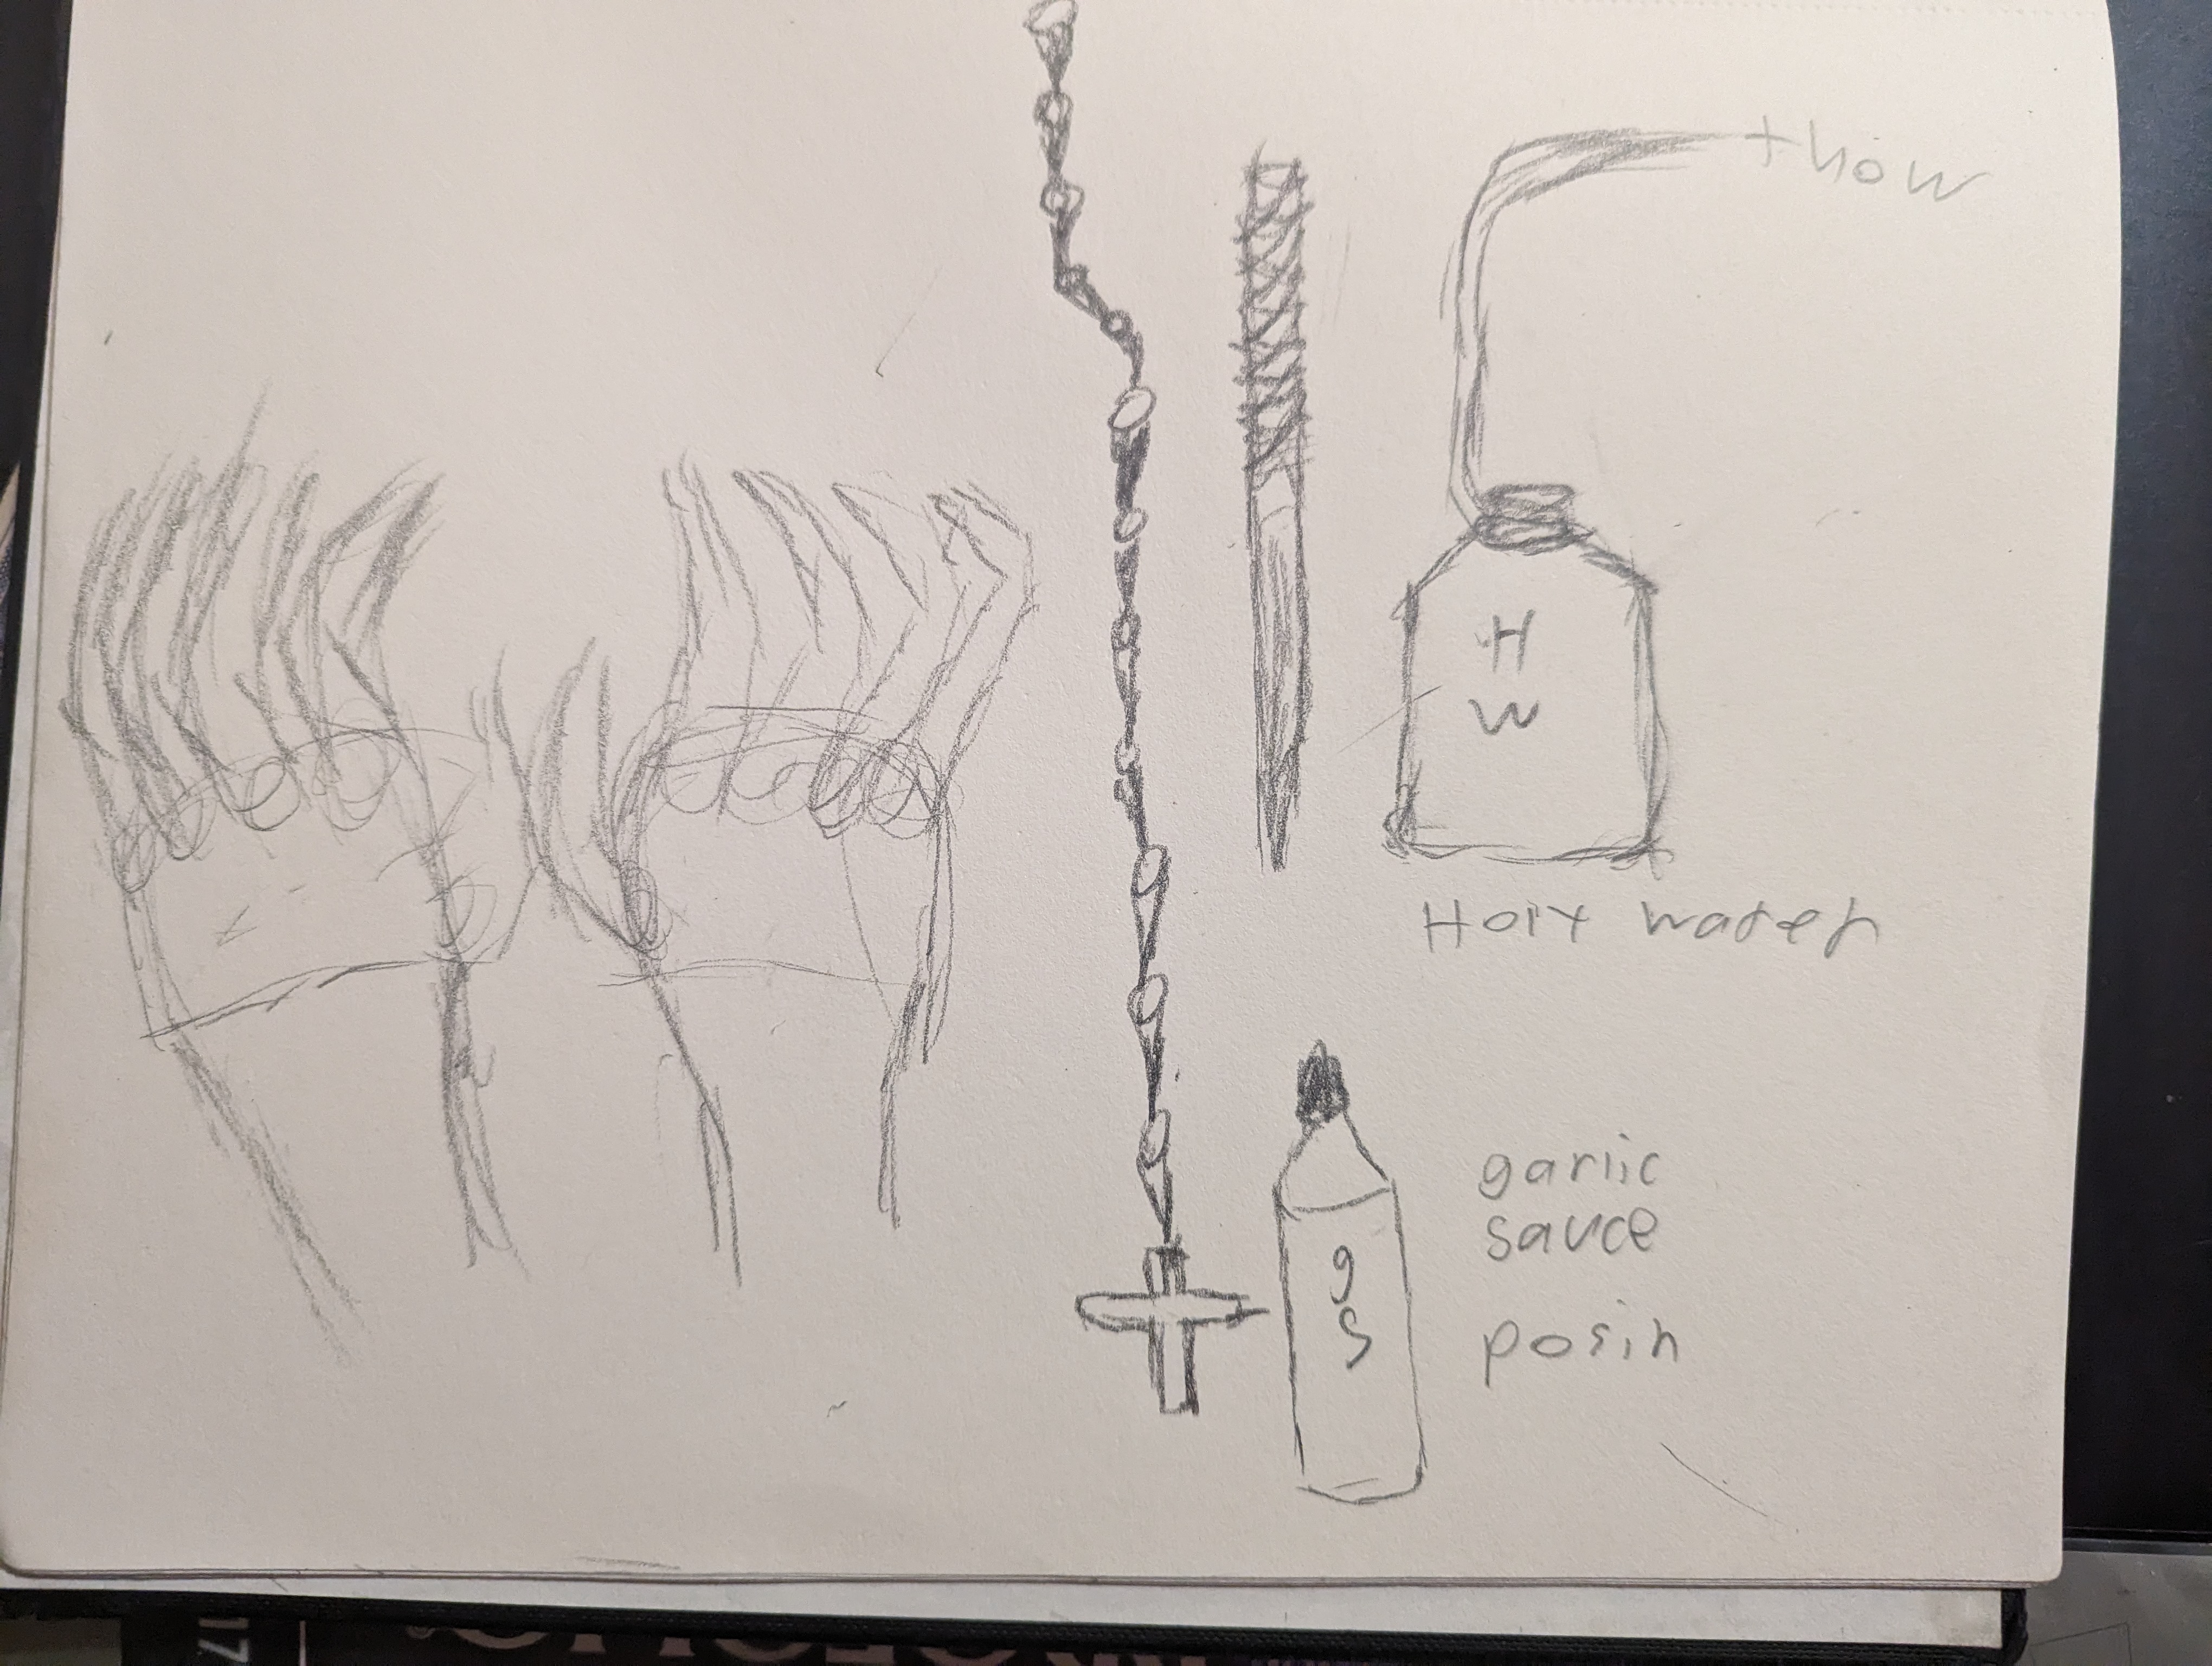 thow
H
W
Holy water
garlic
sauce
g
S
posin